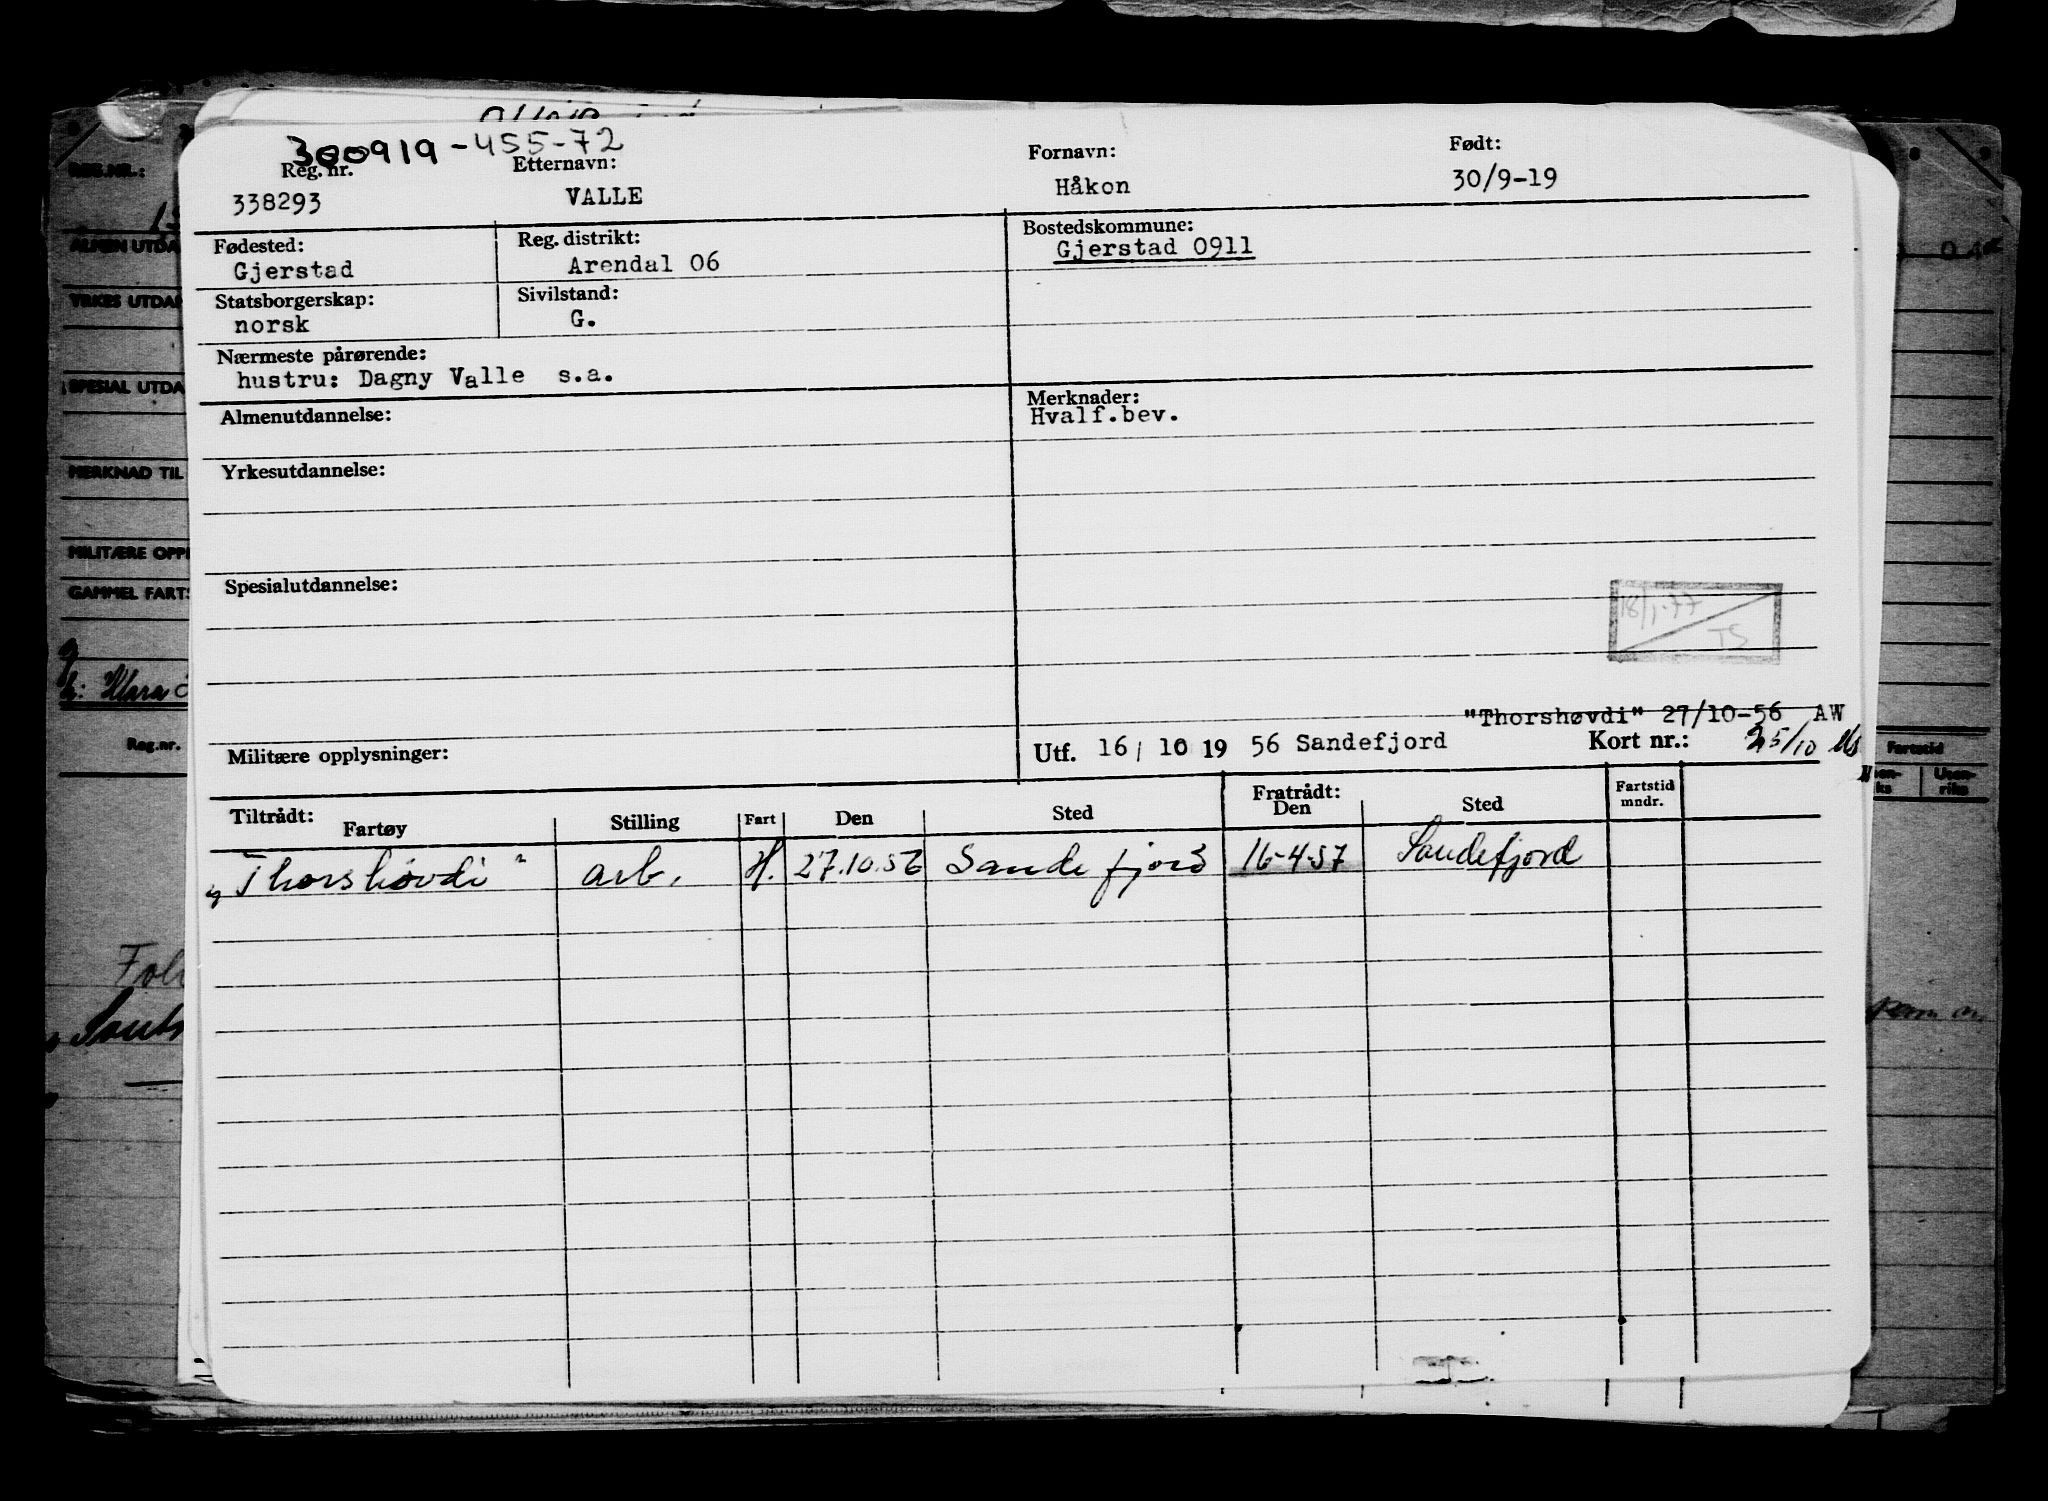 300919-455-72
Reg. nr. Etternavn: Fornavn: Født:
338293 VALLE Håkon 30/9-19
Fødested: Reg. distrikt: Bostedskommune:
Gjerstad Arendal 06 Gjerstad 0911
Statsborgerskap: Sivilstand:
norsk G.
Nærmeste pårørende:
hustru: Dagny Valle s.a.
Almenutdannelse: Merknader:
Hvalf.bev.
Yrkesutdannelse:
Spesialutdannelse:
18/1-77
TS
"Thorshøvdi" 27/10-56 AW
Militære opplysninger: Utf. 16/ 10 19 56 Sandefjord Kort nr.: 25/10
Tiltrådt: Fratrådt:
Fartøy Stilling Fart Den Sted Den Sted Fartstid mndr.
"Thorshøvdi" arb. H. 27.10.56 Sandefjord 16-4-57 Sandefjord
REG.NR.:
ALMEN UTDA
YRKES UTDA
SPESIAL UTDA
MERKNAD TIL
MILITÆRE OPP
GAMMEL FARTS
Reg.nr.
Fartstid